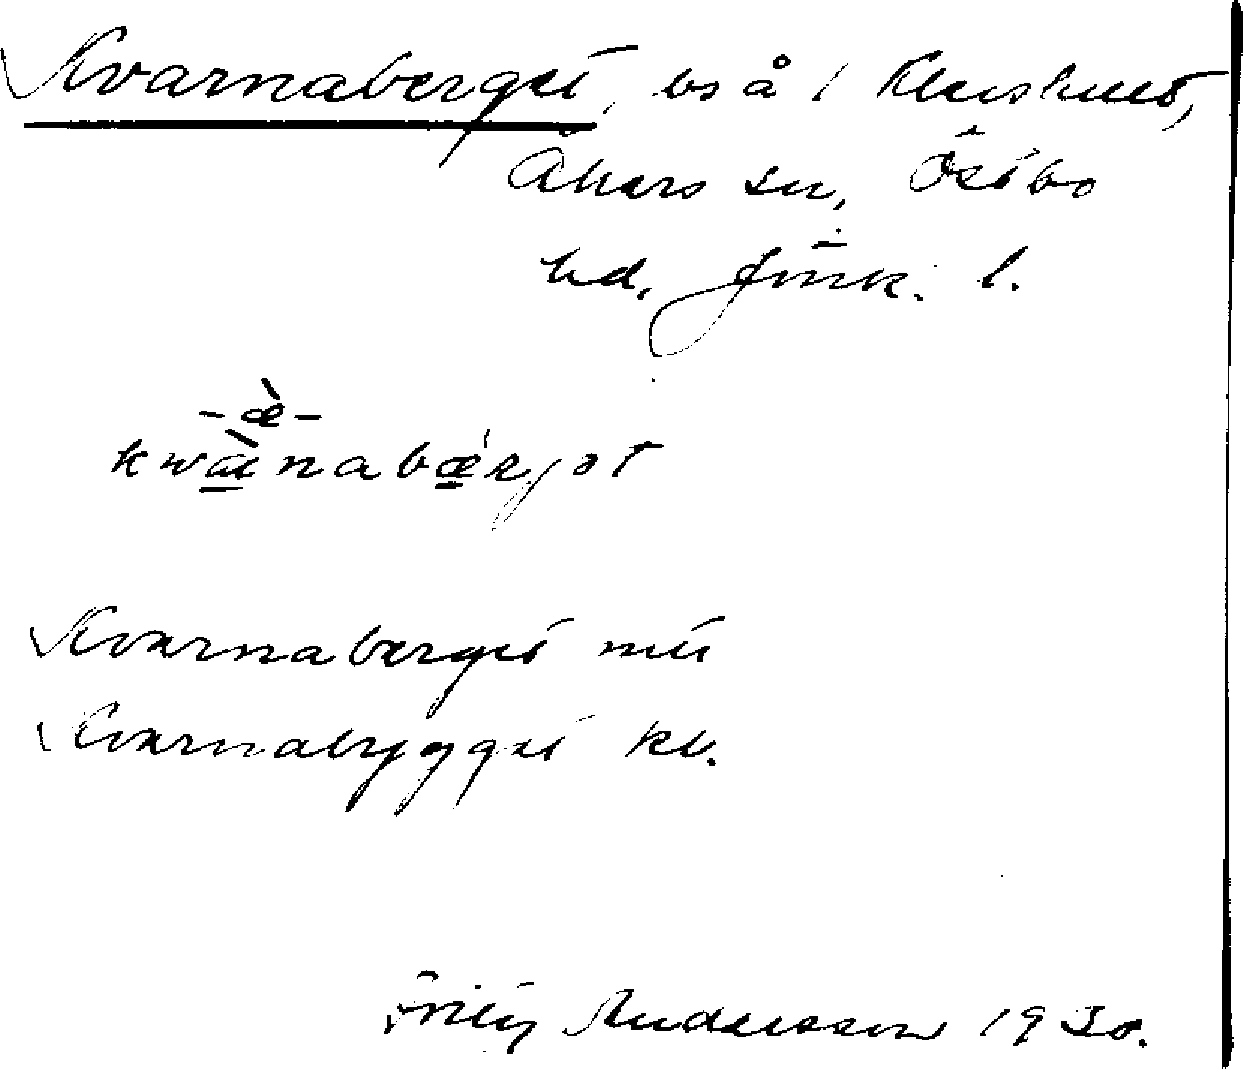 Kvarnaberget, bs å
Åkers sn, Östbo
hd, Jönk. l.
-æ̀-
kwæ̀nabærjət
Kvarnaberget mtr
Kvarnabygget kl.
Fritz Andersson 1930.